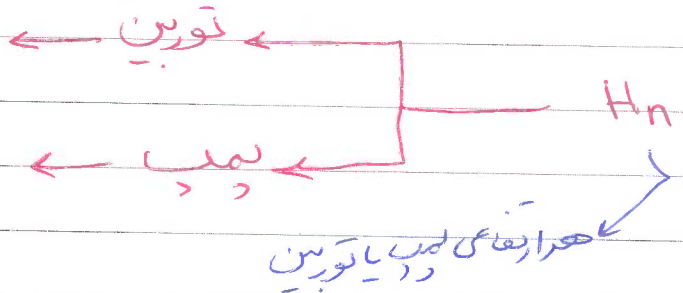 توربین
Hn
پمپ
هد ارتفاعی پمپ یا توربین